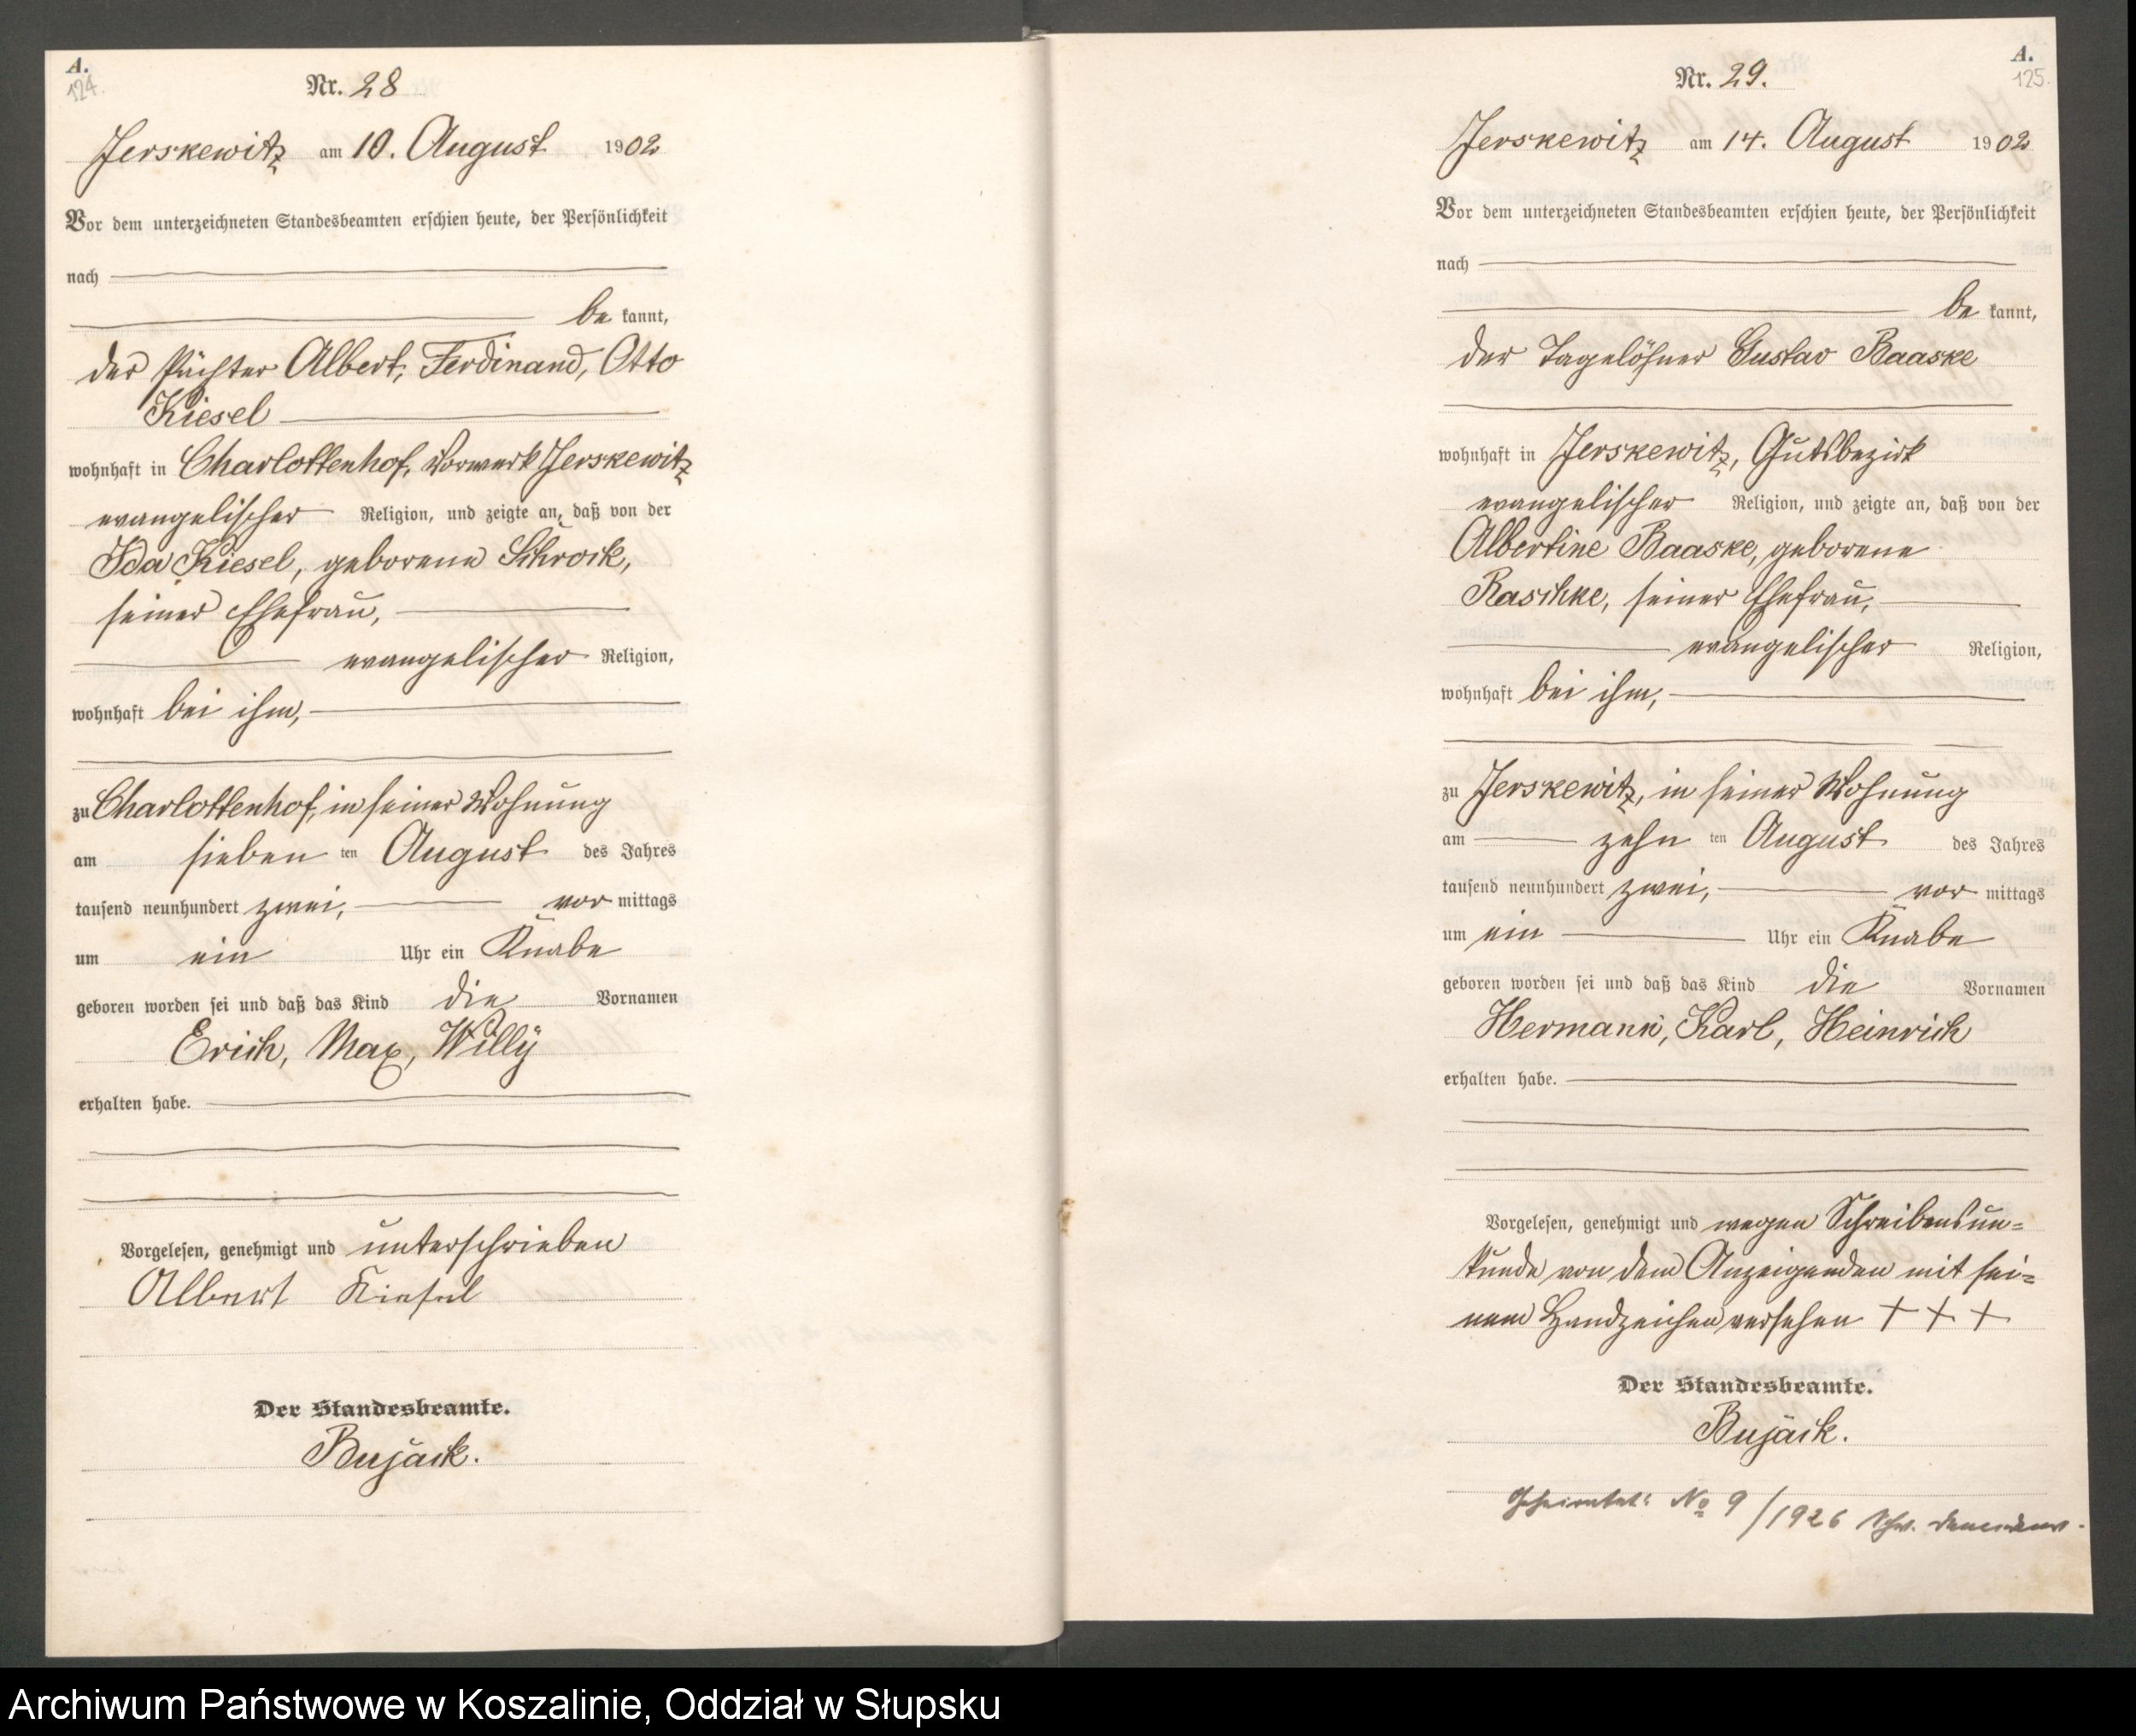 A.
124.
Nr. 28
Jerskewitz am 10. August 1902
Vor dem unterzeichneten Standesbeamten erschien heute, der Persönlichkeit
nach
be kannt,
der Pächter Albert, Ferdinand, Otto
Kiesel
wohnhaft in Charlottenhof, Vorwerk Jerskewitz
evangelischer Religion, und zeigte an, daß von der
Ida Kiesel, geborene Schrock,
seiner Ehefrau,
evangelischer Religion,
wohnhaft bei ihm,
zu Charlottenhof, in seiner Wohnung
am sieben ten August des Jahres
tausend neunhundert zwei, vor mittags
um ein Uhr ein Knabe
geboren worden sei und daß das Kind die Vornamen
Erich, Max, Willy
erhalten habe.
Vorgelesen, genehmigt und unterschrieben
Albert Kiesel
Der Standesbeamte.
Bujack.
A.
125.
Nr. 29.
Jerskewitz am 14. August 1902
Vor dem unterzeichneten Standesbeamten erschien heute, der Persönlichkeit
nach
be kannt,
der Tagelöhner Gustav Baaske
wohnhaft in Jerskewitz, Gutsbezirk
evangelischer Religion, und zeigte an, daß von der
Albertine Baaske, geborene
Raschke, seiner Ehefrau,
evangelischer Religion,
wohnhaft bei ihm,
zu Jerskewitz, in seiner Wohnung
am zehn ten August des Jahres
tausend neunhundert zwei, vor mittags
um ein Uhr ein Knabe
geboren worden sei und daß das Kind die Vornamen
Hermann, Karl, Heinrich
erhalten habe.
Vorgelesen, genehmigt und wegen Schreibensun=
kunde von dem Anzeigenden mit sei=
nem Handzeichen versehen + + +
Der Standesbeamte.
Bujack.
Geheiratet: No 9/1926
Archiwum Państwowe w Koszalinie, Oddział w Słupsku